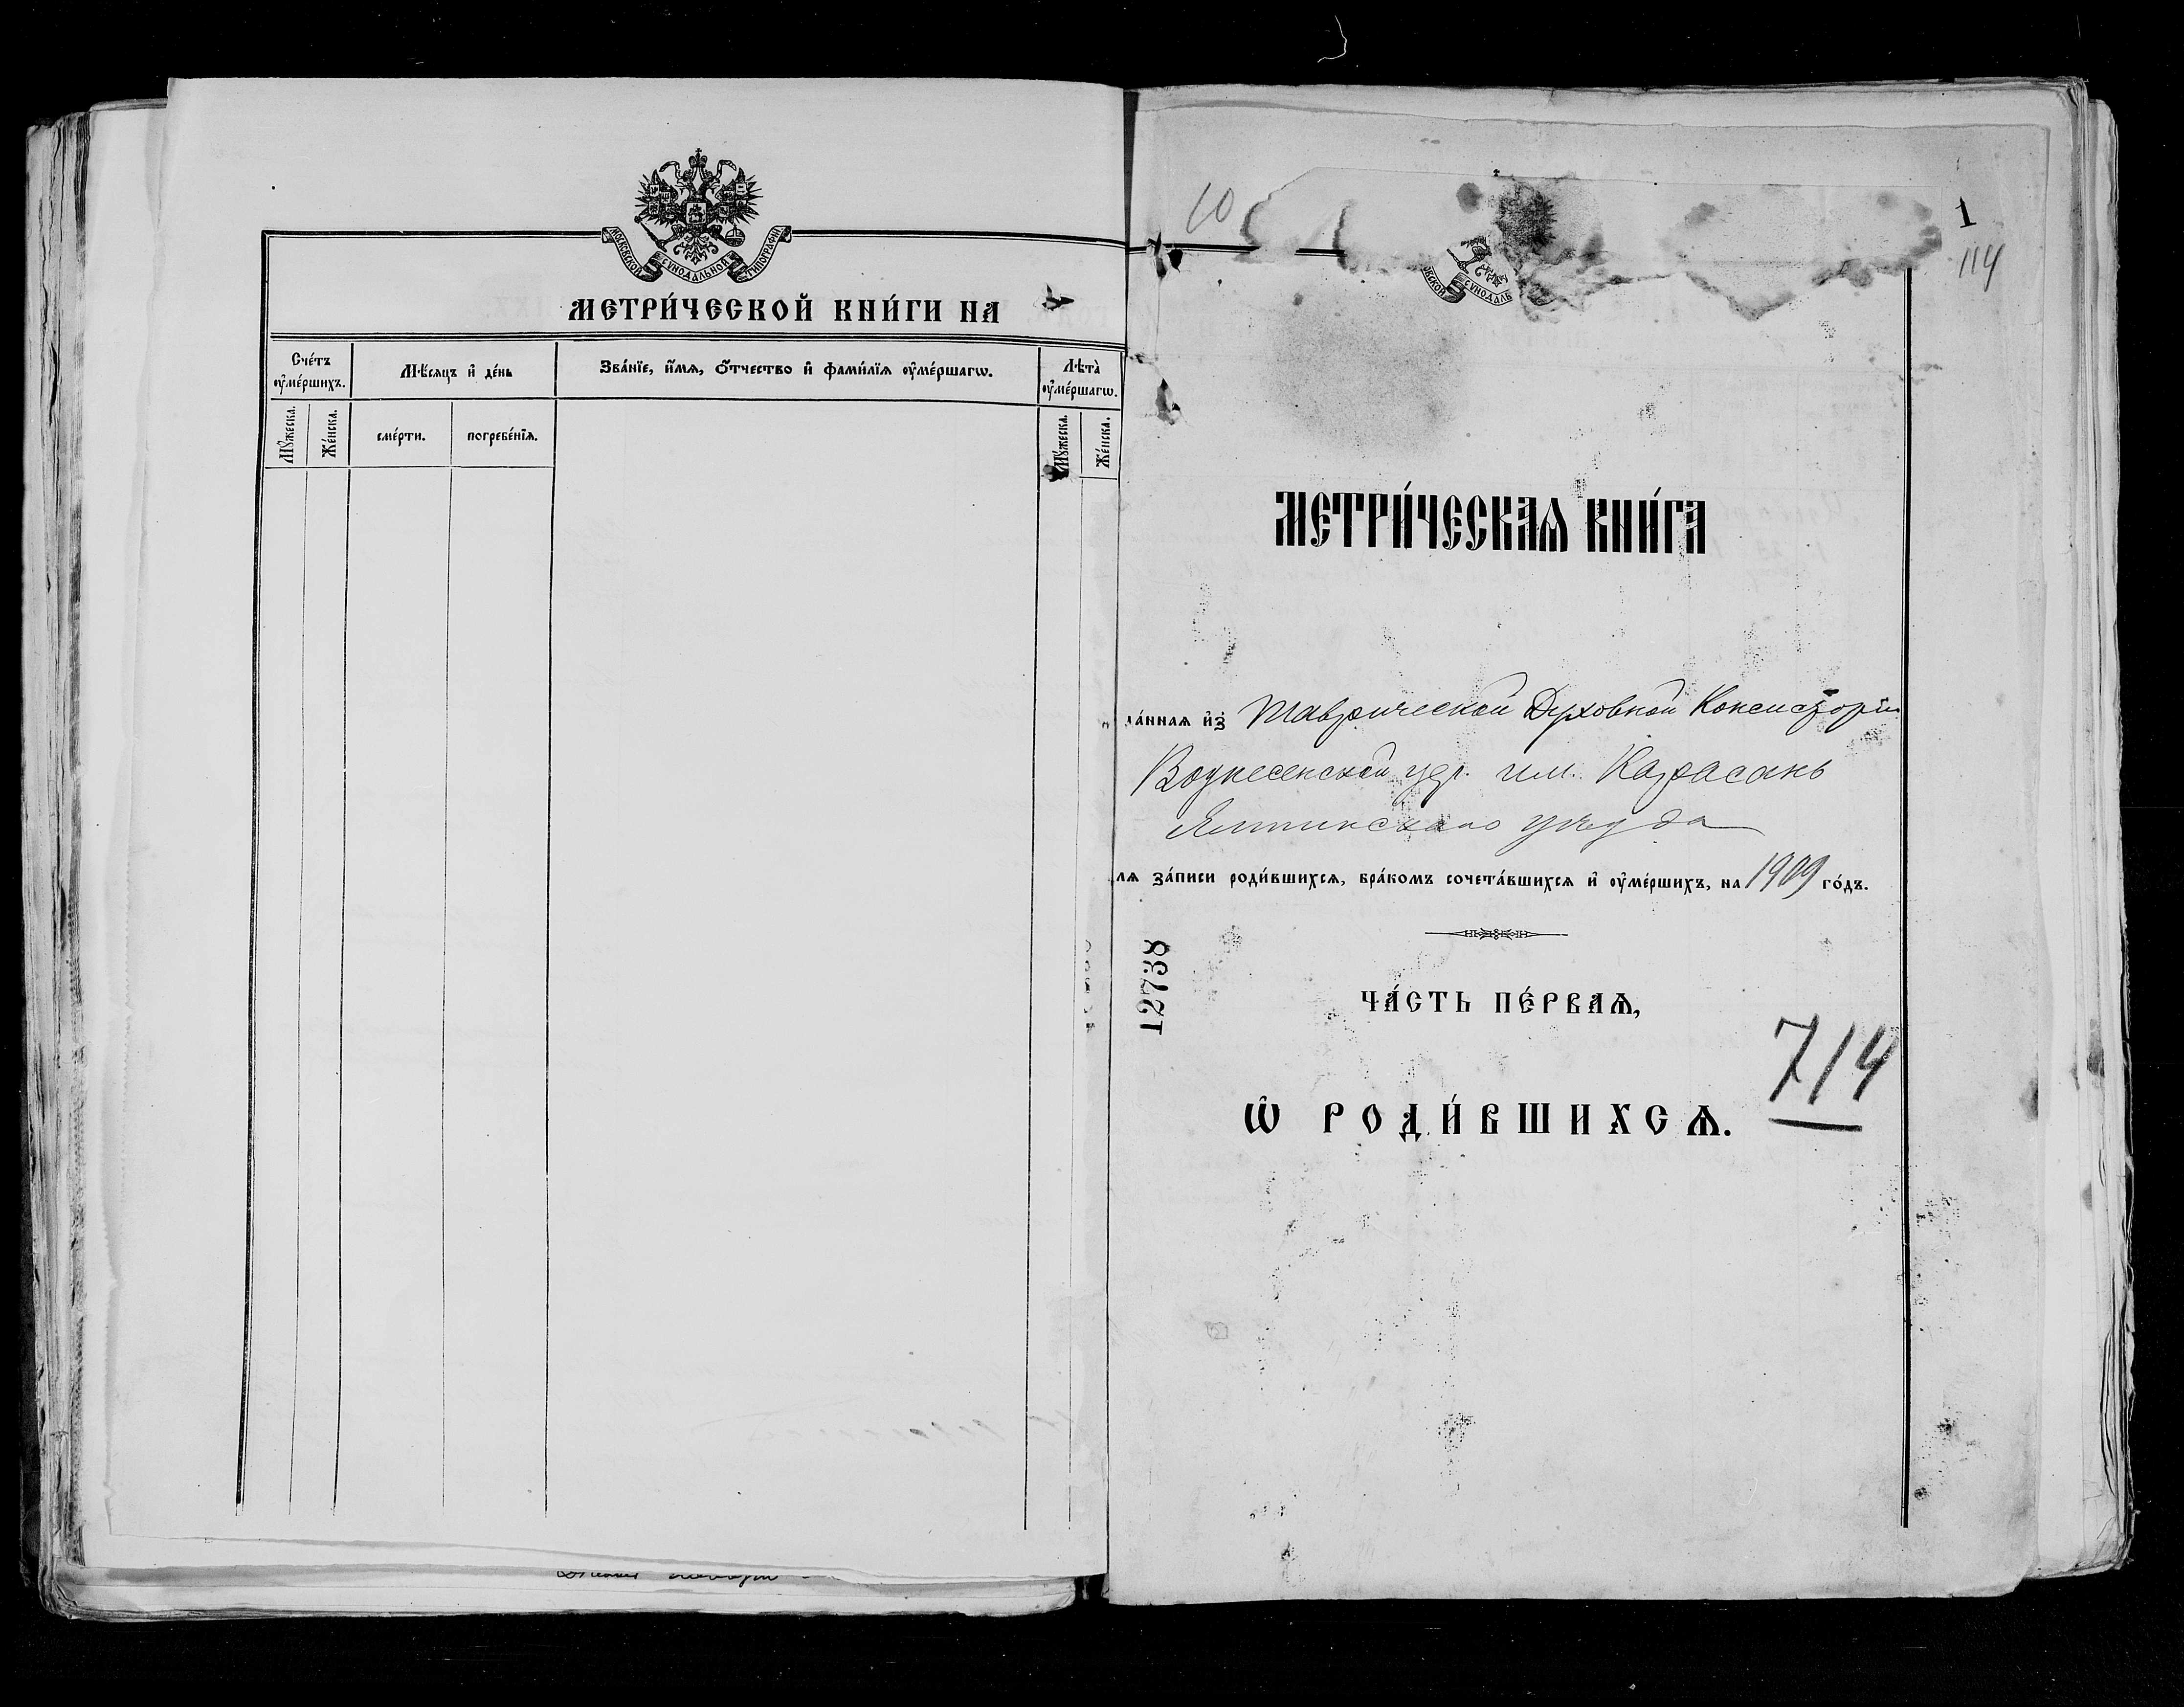 МОСКОВСКОЙ СѴНОДАЛЬНОЙ ТИПОГРАФІИ
МЕТРИ́ЧЕСКОЙ КНИ́ГИ НА
Счéтъ ᲂу҆мéршихъ.
Мѣ́сяцъ и҆ дéнь
Звáнїе, и҆́мѧ, ѻ҆́тчество и҆ фами́лїѧ ᲂу҆мéршагѡ.
Лѣтà ᲂу҆мéршагѡ.
Мꙋ́жеска.
Жéнска.
смéрти.
погребéнїѧ.
Мꙋ́жеска.
Жéнска.
10
1
114
ОВСКОЙ СѴНОДАЛЬ
МЕТРИ́ЧЕСКАѦ КНИ́ГА
дáннаѧ и҆з̾ Таврической Духовной Консисторіи
Вознесенской цер. им. Карасанъ
Ялтинскаго уѣзда
лѧ зáписи роди́вшихсѧ, брáкомъ сочетáвшихсѧ и҆ ᲂу҆мéршихъ, на 1909 гóдъ.
12738
ЧА́СТЬ ПÉРВАѦ,
714
Ѡ҆ РОДИ́ВШИХСѦ.